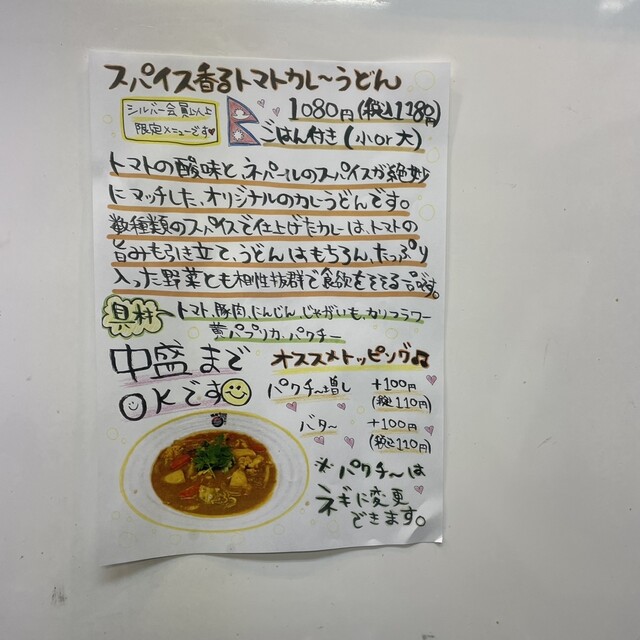 スパイス香るトマトカレ～うどん
シルバー会員以上
限定メニューです♥
1080円(税込1180円)
ごはん付き(小or大)
トマトの酸味と、ネパールのスパイスが絶妙
にマッチした、オリジナルのカレうどんです。
数種類のスパイスで仕上げたカレーは、トマトの
旨みも引き立て、うどんはもちろん、たっぷり
入った野菜とも相性抜群で食欲をそそる一品です。
具材～トマト、豚肉、にんじん、じゃがいも、カリフラワー
黄パプリカ、パクチー
中盛まで
OKです
オススメトッピング♫
パクチ～増し +100円
(税込110円)
バタ～ +100円
(税込110円)
※パクチ～は
ネギに変更
できます。